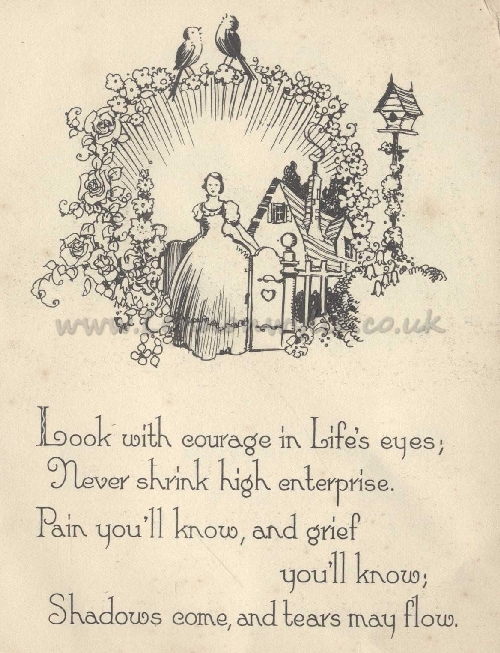 Look with courage in Life's eyes;
Never shrink high enterprise.
Pain you'll know, and grief
you'll know;
Shadows come, and tears may flow.